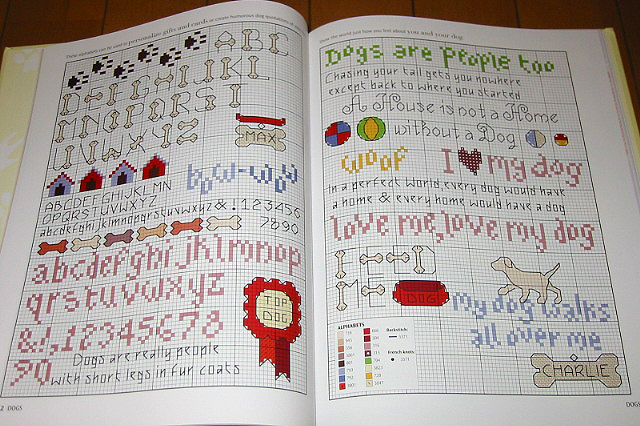 These alphabets can be used to personalize gifts and cards or create humorous dog quotations
A B C
D E F G H I J K L
M N O P Q R S T
U V W X Y Z
MAX
bow-wow
ABCDEFGHIJKLMN
OPQRSTUVWXYZ
abcdefghijklmnopqrstuvwxyz&.123456
7890
abcdefghijklmnop
qrstuvwxyz
&!.12345678
90
TOP
DOG
Dogs are really people
with short legs in fur coats
2 DOGS
the world just how you feel about you and your dog
Dogs are people too
Chasing your tail gets you nowhere
except back to where you started
A House is not a Home
without a Dog
woof
I my dog
In a perfect world, every dog would have
a home & every home would have a dog
love me, love my dog
DOG
my dog walks
all over me
ALPHABETS
Backstitch
French knots
CHARLIE
DOGS